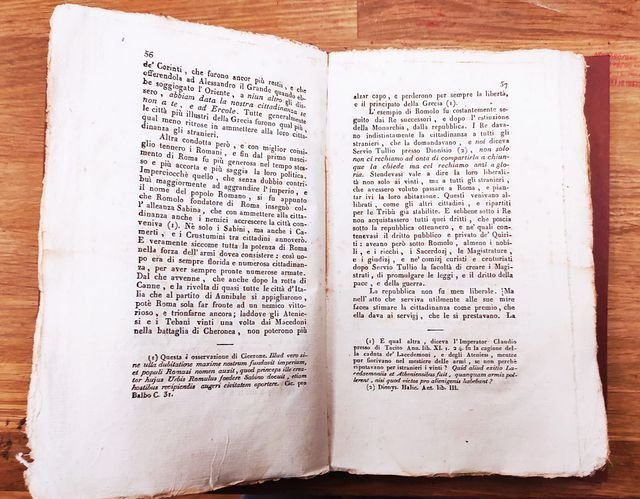 56
de' Corinti, che furono ancor più restii, e che
offerendola ad Alessandro il Grande quando eb-
be soggiogato l'Oriente, a niun altro gli dis-
sero, abbiam data la nostra cittadinanza se
non a te, e ad Ercole. Tutte generalmente
le città più illustri della Grecia furono qual più,
qual meno ritrose in ammettere alla loro citta-
dinanza gli stranieri.
Altra condotta però, e con miglior consi-
glio tennero i Romani, e fin dal primo nasci-
mento di Roma fu più generosa nel tempo stes-
so e più accorta e più saggia la loro politica.
Imperciocchè quello, che senza dubbio contri-
buì maggiormente ad aggrandire l'imperio, e
il nome del popolo Romano, si fu appunto
che Romolo fondatore di Roma insegnò col-
l'alleanza Sabina, che con ammettere alla citta-
dinanza anche i nemici accrescere la città con-
veniva (1). Nè solo i Sabini, ma anche i Ca-
merti, e i Crustumini tra cittadini annoverò.
E veramente siccome tutta la potenza di Roma
nella forza dell'armi dovea consistere; così uo-
po era di sempre florida e numerosa cittadinan-
za, per aver sempre pronte numerose armate.
Dal che avvenne, che anche dopo la rotta di
Canne, e la rivolta di quasi tutte le città d'Ita-
lia che al partito di Annibale si appigliarono,
potè Roma sola far fronte ad un nemico vitto-
rioso, e trionfarne ancora; laddove gli Atenie-
si e i Tebani vinti una volta dai Macedoni
nella battaglia di Cheronea, non poterono più
(1) Questa è osservazione di Cicerone. Illud vero si-
ne ulla dubitatione maxime nostrum fundavit imperium,
et populi Romani nomen auxit, quod princeps ille crea-
tor hujus Urbis Romulus foedere Sabino docuit, etiam
hostibus recipiendis augeri civitatem oportere. Cic. pro
Balbo C. 31.
57
alzar capo, e perderono per sempre la libertà,
e il principato della Grecia (1).
L'esempio di Romolo fu costantemente se-
guito dai Re successori, e dopo l'estinzione
della Monarchia, dalla repubblica. I Re dava-
no indistintamente la cittadinanza a tutti gli
stranieri, che la domandavano, e noi diceva
Servio Tullio presso Dionisio (2), non solo
non ci rechiamo ad onta di compartirla a chiun-
que la chiede ma cel rechiamo anzi a glo-
ria. Stendevasi vale a dire la loro liberali-
tà non solo ai vinti, ma a tutti gli stranieri,
che avessero voluto passare a Roma, e pian-
tar ivi la loro abitazione. Questi venivano al-
librati, come gli altri cittadini, e ripartiti
per le Tribù già stabilite. E sebbene sotto i Re
non acquistassero tutti quei dritti, che poscia
sotto la repubblica ottennero, e ne' quali con-
tenevasi il dritto pubblico e privato de' Quiri-
ti: aveano però sotto Romolo, almeno i nobi-
li, e i ricchi, i Sacerdozj, le Magistrature,
e i giudizj, e ne' comizj curiati e centuriati
dopo Servio Tullio la facoltà di creare i Magi-
strati, di promolgare le leggi, e il dritto della
pace, e della guerra.
La repubblica non fu men liberale. Ma
nell'atto che serviva utilmente alle sue mire
facea stimare la cittadinanza come premio, che
ella dava ai servizj, che le si prestavano. La
(1) E qual altra, diceva l'Imperator Claudio
presso di Tacito Ann. lib. XI. c. 24. fu la cagione del-
la caduta de' Lacedemoni, e degli Ateniesi, mentre
pur fiorivano nel mestiere delle armi, se non perchè
riputavano per stranieri i vinti? Quid aliud exitio La-
cedaemoniis et Atheniensibus fuit, quamquam armis pol-
lerent, nisi quod victos pro alienigenis habebant?
(2) Dionys. Halic. Ant. lib. III.